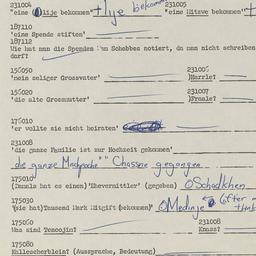 231004 231005
"eine Olije bekommen" + lje bekomm "eine Mitzve bekommen"
187110
'eine Spende stiften'
187112
Wie hat man die Spenden am Schabbes notiert, da man nicht schreiben
darf?
156050 231006
'mein seliger Grossvater' Harrle?
156020 231007
'die alte Grossmutter' Fraale?
176010
'er wollte sie nicht heiraten'
231008
'die ganze Familie ist zur Hochzeit gekommen'
die ganze Mischpoche Chassne gegangen
175010
(Damals hat es einen) 'Ehevermittler' (gegeben) Schadkhen
175030
'(sie hat) Tausend Mark Mitgift (bekommen)' Medinje
175060 231008
Was sind Tenoojin? Knass?
175080
(Aussprache, Bedeutung)